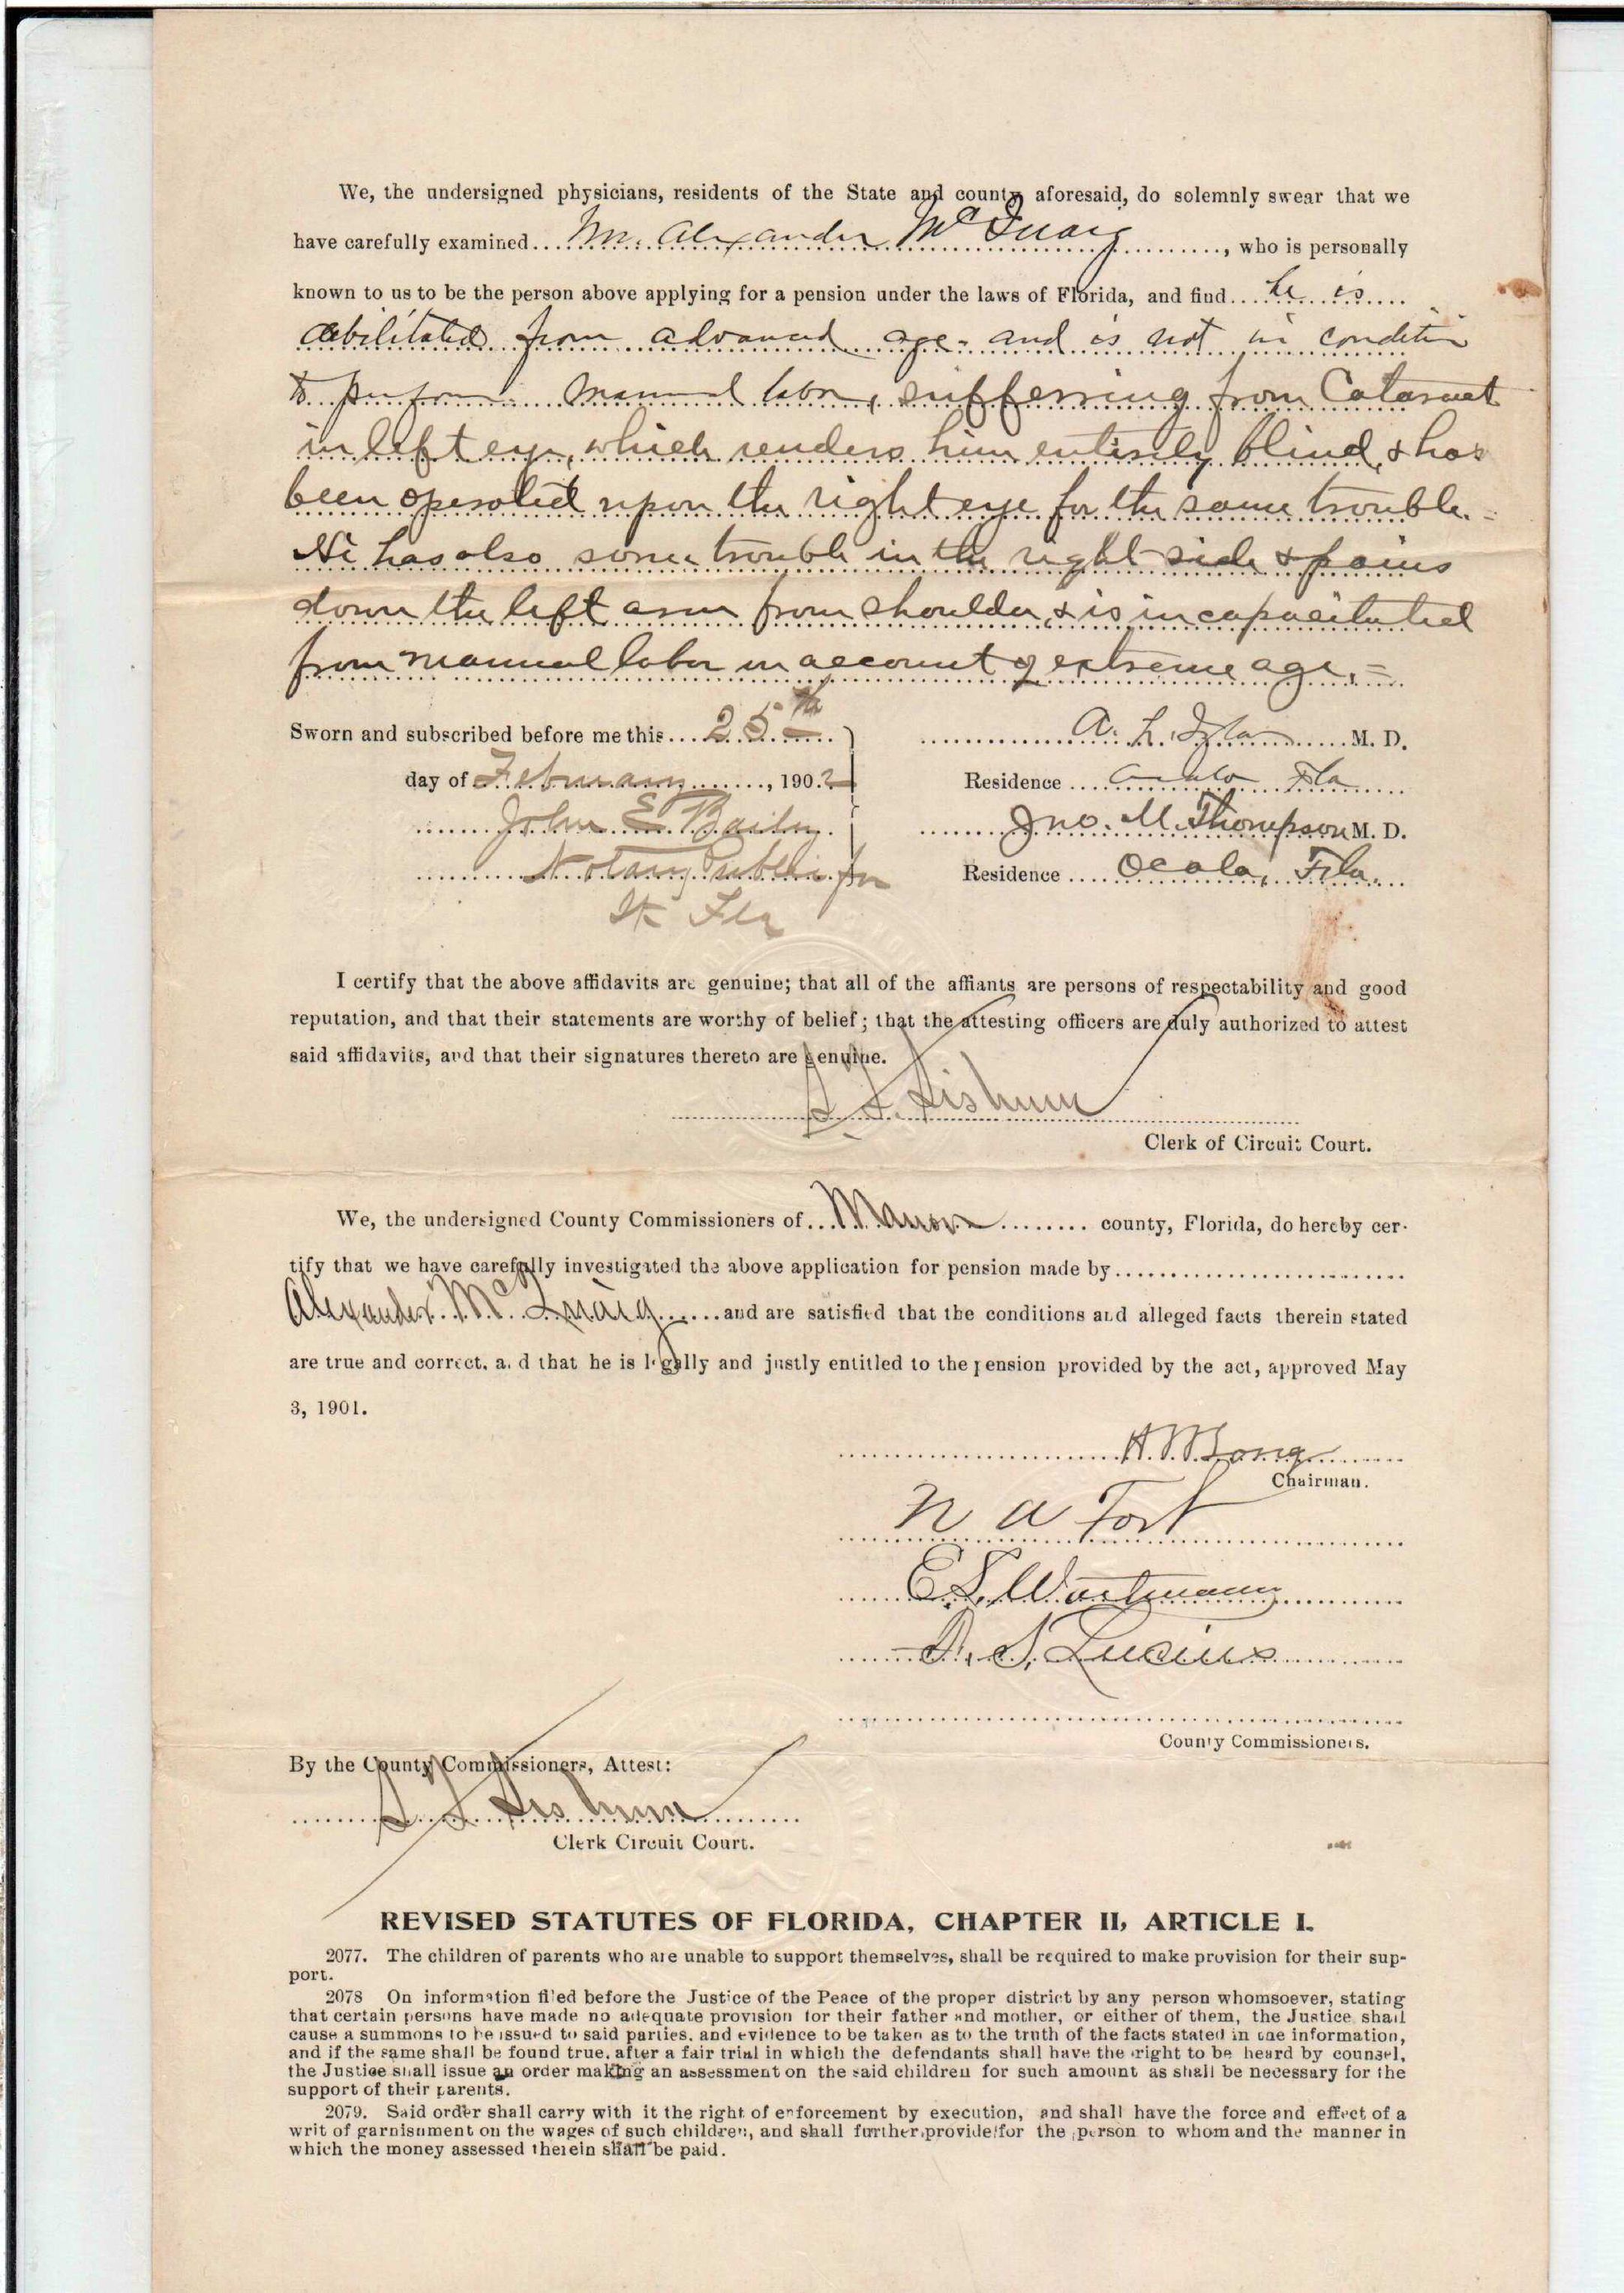 We, the undersigned physicians, residents of the State and county aforesaid, do solemnly swear that we
have carefully examined Mr. Alexander McQuaig, who is personally
known to us to be the person above applying for a pension under the laws of Florida, and find he is
debilitated from advanced age - and is not in condition
to perform manual labor, sufferring from Cataract
in left eye, which renders him entirely blind, & has
been operated upon the right eye for the same trouble. =
He has also some trouble in the right side & pains
down the left arm from shoulder, & is incapacitated
from manual labor on account of extreme age. =
Sworn and subscribed before me this 25th
day of February, 1902
John E Baily
Notary Public for
St Fla
A. L. Izlar M. D.
Residence Ocala Fla
Jno. M. Thompson M. D.
Residence Ocala, Fla.
I certify that the above affidavits are genuine; that all of the affiants are persons of respectability and good
reputation, and that their statements are worthy of belief; that the attesting officers are duly authorized to attest
said affidavits, and that their signatures thereto are genuine.
Clerk of Circuit Court.
We, the undersigned County Commissioners of Marion county, Florida, do hereby cer-
tify that we have carefully investigated the above application for pension made by
Alexander McQuaig and are satisfied that the conditions and alleged facts therein stated
are true and correct, and that he is legally and justly entitled to the pension provided by the act, approved May
3, 1901.
Chairman.
N A Fort
E. L. Wartmann
D. S. Lucius
County Commissioners.
By the County Commissioners, Attest:
Clerk Circuit Court.
REVISED STATUTES OF FLORIDA, CHAPTER II, ARTICLE I.
2077. The children of parents who are unable to support themselves, shall be required to make provision for their sup-
port.
2078 On information filed before the Justice of the Peace of the proper district by any person whomsoever, stating
that certain persons have made no adequate provision for their father and mother, or either of them, the Justice shall
cause a summons to be issued to said parties, and evidence to be taken as to the truth of the facts stated in the information,
and if the same shall be found true, after a fair trial in which the defendants shall have the right to be heard by counsel,
the Justice shall issue an order making an assessment on the said children for such amount as shall be necessary for the
support of their parents.
2079. Said order shall carry with it the right of enforcement by execution, and shall have the force and effect of a
writ of garnishment on the wages of such children, and shall further provide for the person to whom and the manner in
which the money assessed therein shall be paid.